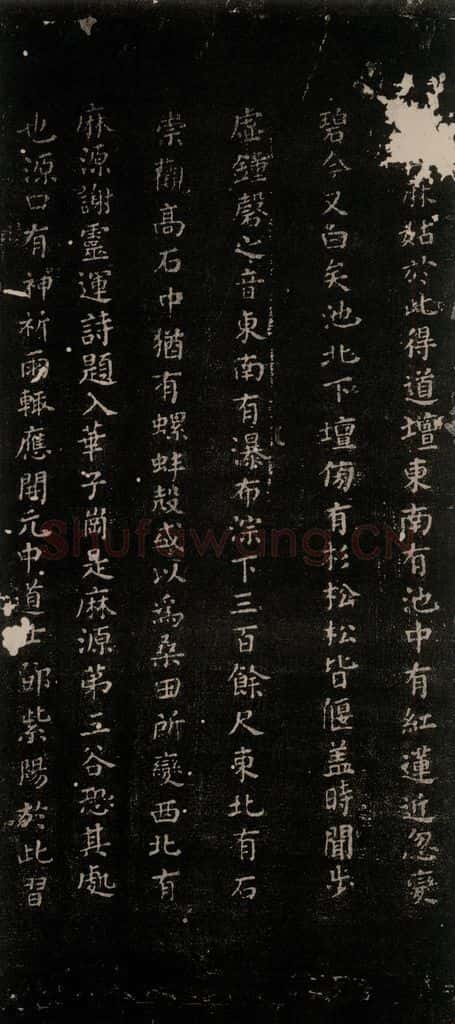 麻姑於此得道壇東南有池中有紅蓮近忽變
碧今又白矣池北下壇傍有杉松松皆偃盖時聞步
虛鐘磬之音東南有瀑布淙下三百餘尺東北有石
崇觀高石中猶有螺蚌殼或以為桑田所變西北有
麻源謝靈運詩題入華子崗是麻源第三谷恐其處
也源口有神祈雨輒應開元中道士鄧紫陽於此習
Shufawang.CN